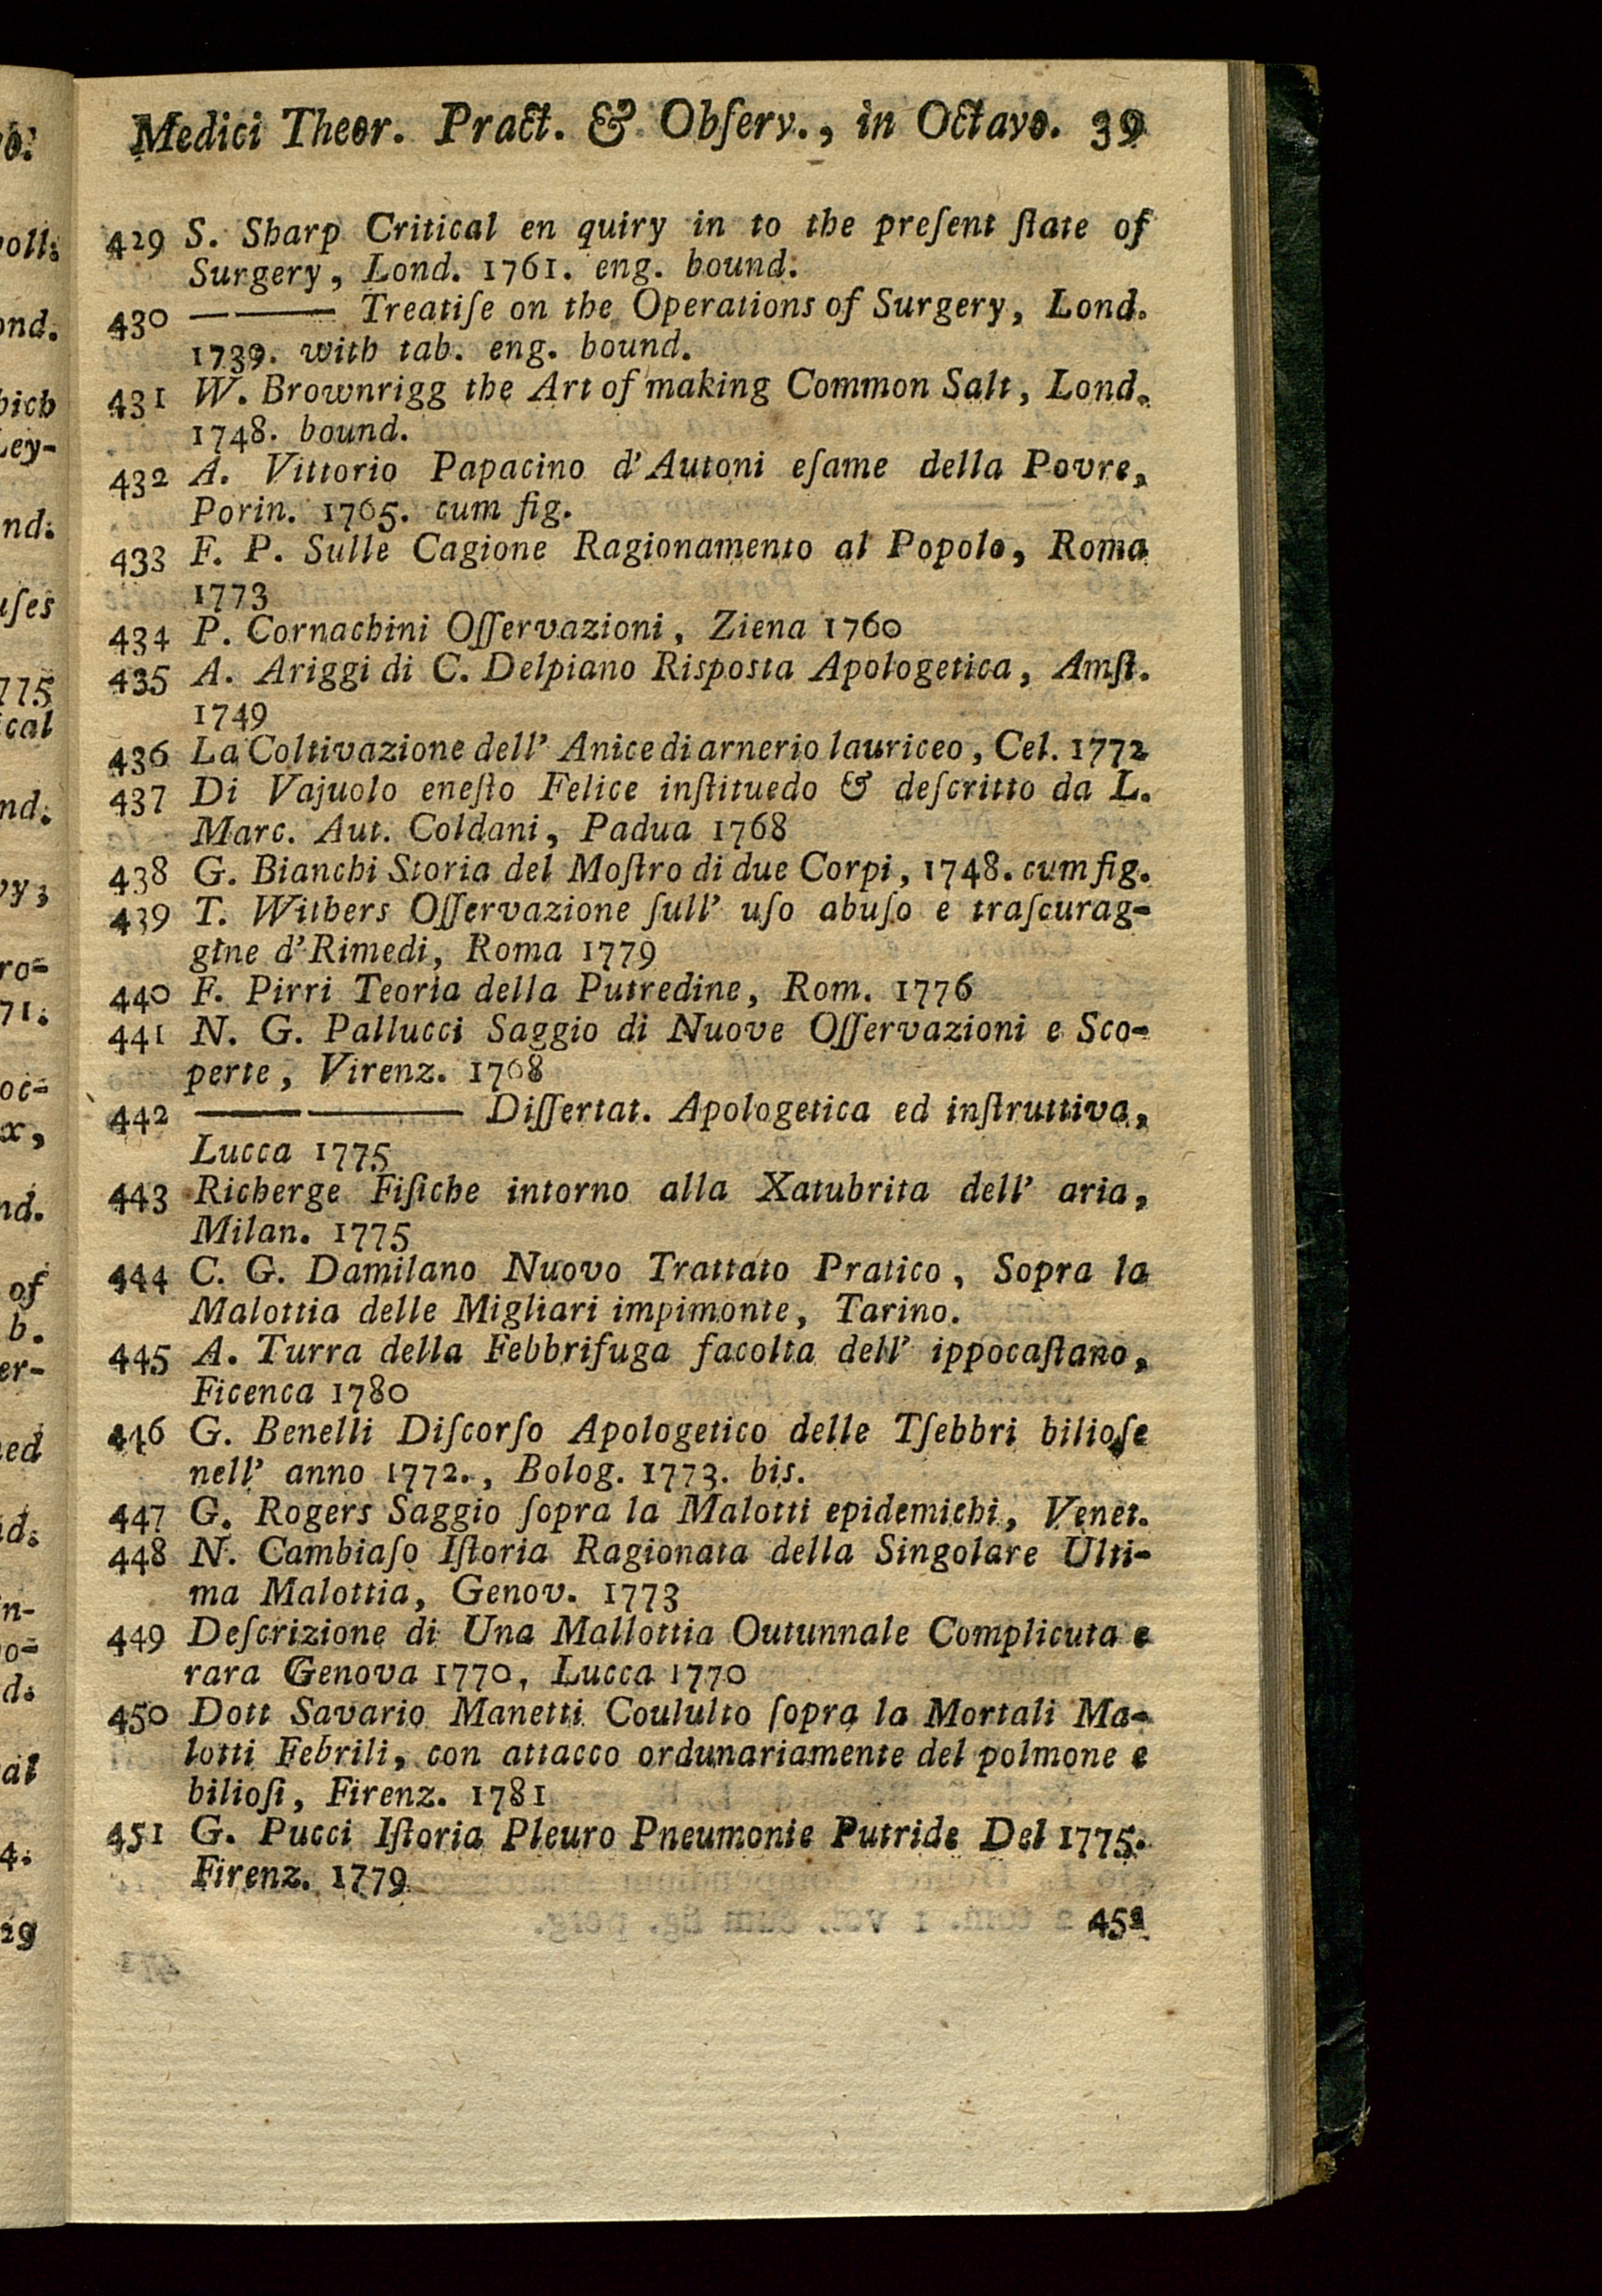 Medici Theor. Pract. & Obſerv., in Octavo. 39
429 S. Sharp Critical en quiry in to the preſent ſtate of
Surgery, Lond. 1761. eng. bound.
430 —— Treatiſe on the Operations of Surgery, Lond.
1739. with tab. eng. bound.
431 W. Brownrigg the Art of making Common Salt, Lond.
1748. bound.
432 A. Vittorio Papacino d' Autoni eſame della Povre,
Porin. 1765. cum fig.
433 F. P. Sulle Cagione Ragionamento al Popolo, Roma
1773
434 P. Cornachini Oſſervazioni, Ziena 1760
435 A. Ariggi di C. Delpiano Risposta Apologetica, Amſt.
1749
436 La Coltivazione dell' Anice di arnerio lauriceo, Cel. 1772
437 Di Vajuolo eneſto Felice inſtituedo & deſcritto da L.
Marc. Aut. Coldani, Padua 1768
438 G. Bianchi Storia del Moſtro di due Corpi, 1748. cum fig.
439 T. Withers Oſſervazione ſull' uſo abuſo e traſcurag-
gine d' Rimedi, Roma 1779
440 F. Pirri Teoria della Putredine, Rom. 1776
441 N. G. Pallucci Saggio di Nuove Oſſervazioni e Sco-
perte, Virenz. 1768
442 —— Diſſertat. Apologetica ed inſtruttiva,
Lucca 1775
443 Richerge Fiſiche intorno alla Xatubrita dell' aria,
Milan. 1775
444 C. G. Damilano Nuovo Trattato Pratico, Sopra la
Malottia delle Migliari impimonte, Tarino.
445 A. Turra della Febbrifuga facolta dell' ippocaſtano,
Ficenca 1780
446 G. Benelli Diſcorſo Apologetico delle Tſebbri bilioſe
nell' anno 1772., Bolog. 1773. bis.
447 G. Rogers Saggio ſopra la Malotti epidemichi, Venet.
448 N. Cambiaſo Iſtoria Ragionata della Singolare Ulti-
ma Malottia, Genov. 1773
449 Deſcrizione di Una Mallottia Outunnale Complicuta e
rara Genova 1770, Lucca 1770
450 Dott Savario Manetti Coululto ſopra la Mortali Ma-
lotti Febrili, con attacco ordunariamente del polmone e
bilioſi, Firenz. 1781
451 G. Pucci Iſtoria Pleuro Pneumonie Putride Del 1775.
Firenz. 1779
452